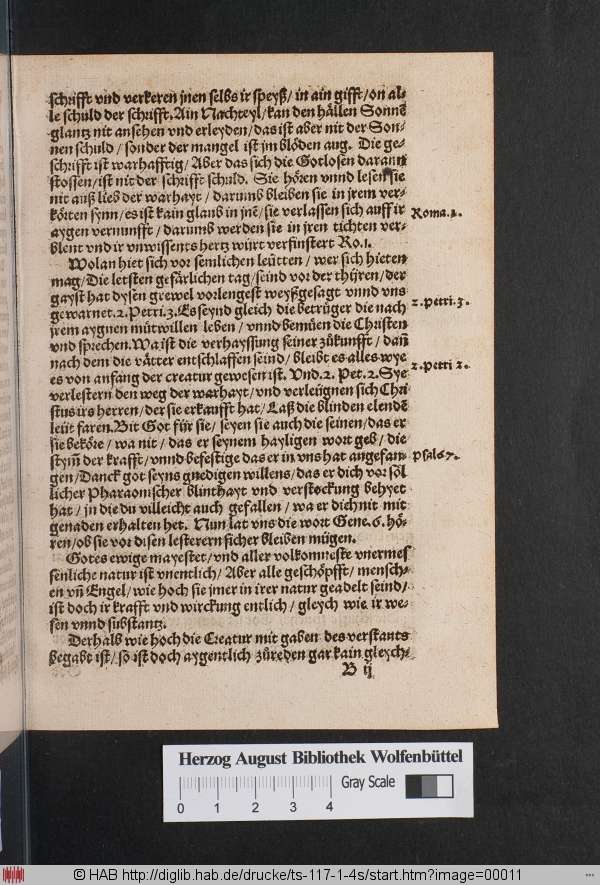 schrifft vnd verkeren jnen selbs ir speyß/ in ain gifft/ on al⸗
le schuld der schrifft. Ain Nachteyl/ kan den hällen Sonnē
glantz nit ansehen vnd erleyden/ das ist aber nit der Son⸗
nen schuld/ sonder der mangel ist jm blöden aug. Die ge⸗
schrifft ist warhafftig/ Aber das sich die Gotlosen darann
stossen/ ist nit der schrifft schuld. Sie hören vnnd lesen sie
nit auß lieb der warhayt/ darumb bleiben sie in jrem ver⸗
körten synn/ es ist kain glaub in jnē/ sie verlassen sich auff ir
aygen vernunfft/ darumb werden sie in jren tichten ver⸗
blent vnd ir vnwissents hertz würt verfinstert Ro.1.
Roma.1.
Wolan hiet sich vor semlichen leütten/ wer sich hieten
mag/ Die letsten gefärlichen tag/ seind vor der thijren/ der
gayst hat dysen grewel vorlengest weyßgesagt vnnd vns
gewarnet. 2. Petri. 3. Es seynd gleich die betrüger die nach
2. petri. 3.
jrem aygnen mütwillen leben/ vnnd bemüen die Christen
vnd sprechen. Wa ist die verhayssung seiner zükunfft/ dañ
nach dem die vätter entschlaffen seind/ bleibt es alles wye
es von anfang der creatur gewesen ist. Vnd. 2. Pet. 2. Sye
2. petri 2.
verlestern den weg der warhayt/ vnd verleügnen sich Chri
stus irs herren/ der sie erkaufft hat/ Laß die blinden elendē
leüt faren. Bit Got für sie/ seyen sie auch die seinen/ das er
sie bekōre/ wa nit/ das er seynem hayligen wort geb/ die
stym̄ der krafft/ vnnd befestige das er in vns hat angefan⸗
psal 67.
gen/ Danck got seyns gnedigen willens/ das er dich vor söl
licher Pharaonischer blinthayt vnd verstockung behyet
hat/ jn die du villeicht auch gefallen/ wa er dich nit mit
genaden erhalten het. Nun lat vns die wort Gene. 6. hö⸗
ren/ ob sie vor disen lesterern sicher bleiben mügen.
Gotes ewige mayestet/ vnd aller volkomneste vnermes
senliche natur ist vnentlich/ Aber alle geschöpfft/ mensch⸗
en vñ Engel/ wie hoch sie jmer in irer natur geadelt seind/
ist doch ir krafft vnd wirckung entlich/ gleych wie ir we⸗
sen vnnd substantz.
Derhalb wie hoch die Creatur mit gaben des verstants
begabt ist/ so ist doch aygentlich zůreden gar kain gleych⸗
B ij
Herzog August Bibliothek Wolfenbüttel
Gray Scale
0 1 2 3 4
© HAB http://diglib.hab.de/drucke/ts-117-1-4s/start.htm?image=00011